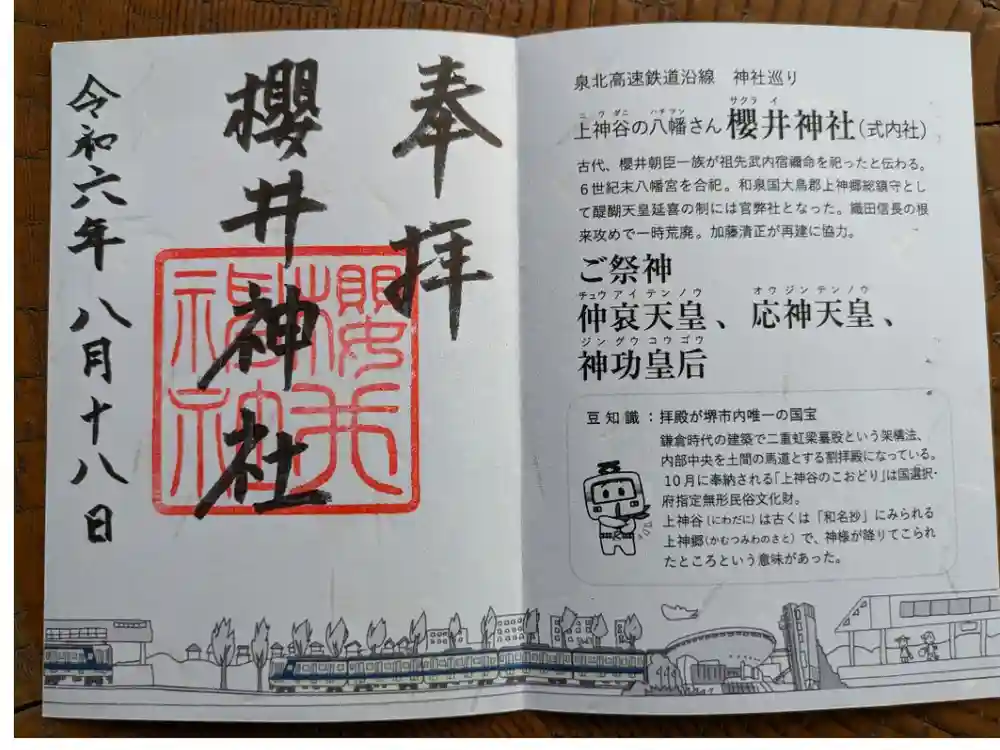 奉拝
櫻井神社
櫻井神社
令和六年八月十八日
泉北高速鉄道沿線　神社巡り
ニワダニ　ハチマン　サクライ
上神谷の八幡さん 櫻井神社(式内社)
古代、櫻井朝臣一族が祖先武内宿禰命を祀ったと伝わる。
6世紀末八幡宮を合祀。和泉国大鳥郡上神郷総鎮守とし
て醍醐天皇延喜の制には官弊社となった。織田信長の根
来攻めで一時荒廃。加藤清正が再建に協力。
ご祭神
チュウアイテンノウ　オウジンテンノウ
仲哀天皇、応神天皇、
ジングウコウゴウ
神功皇后
豆知識：拝殿が堺市内唯一の国宝
鎌倉時代の建築で二重虹梁蟇股という架構法、
内部中央を土間の馬道とする割拝殿になっている。
10月に奉納される「上神谷のこおどり」は国選択・
府指定無形民俗文化財。
上神谷(にわだに)は古くは「和名抄」にみられる
上神郷(かむつみわのさと)で、神様が降りてこられ
たところという意味があった。